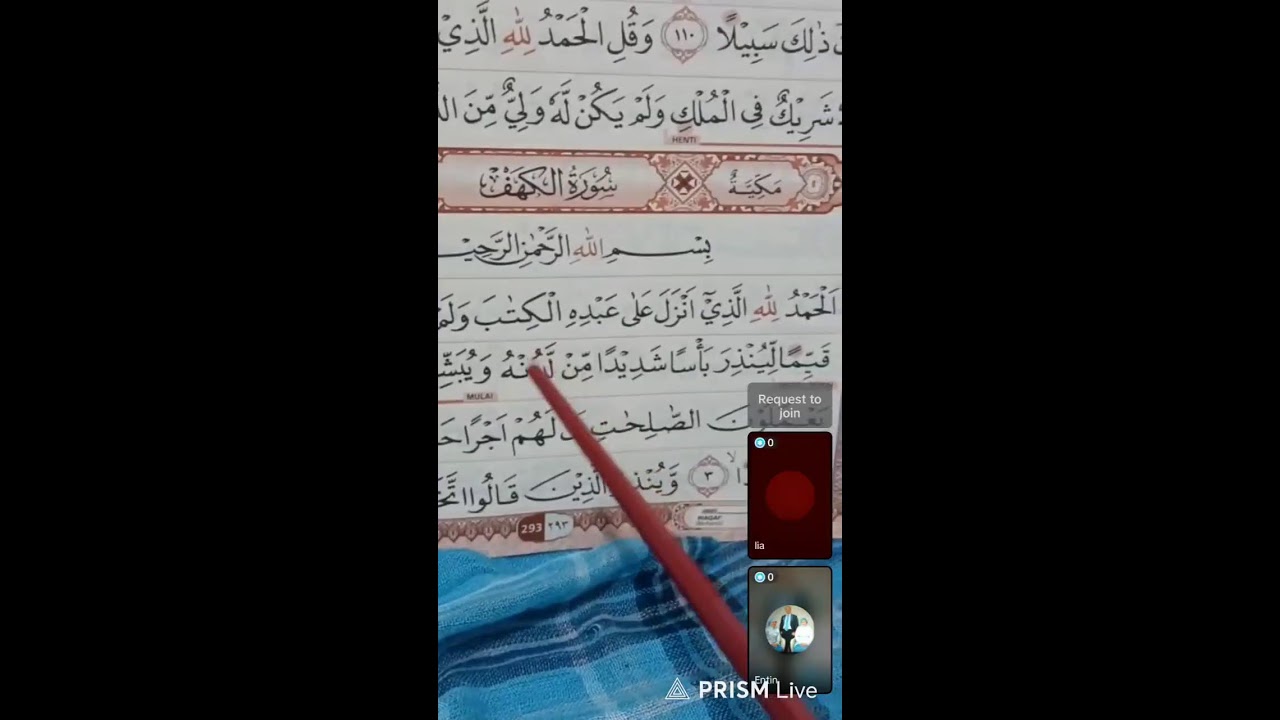 ذٰلِكَ سَبِيْلًا ١١٠ وَقُلِ الْحَمْدُ لِلّٰهِ الَّذِيْ
شَرِيْكٌ فِى الْمُلْكِ وَلَمْ يَكُنْ لَّهٗ وَلِيٌّ مِّنَ
HENTI
سُوْرَةُ الْكَهْفِ
مَكِّيَّةٌ
بِسْمِ اللّٰهِ الرَّحْمٰنِ الرَّحِيْ
اَلْحَمْدُ لِلّٰهِ الَّذِيْٓ اَنْزَلَ عَلٰى عَبْدِهِ الْكِتٰبَ وَلَمْ
قَيِّمًا لِّيُنْذِرَ بَأْسًا شَدِيْدًا مِّنْ لَّدُنْهُ وَيُبَشِّ
MULAI
الصّٰلِحٰتِ لَهُمْ اَجْرًا حَ
٣ وَّيُنْذِ الَّذِيْنَ قَالُوا اتَّخَ
293 ٢٩٣
WAQAF
Request to
join
0
lia
0
Entin
PRISM Live